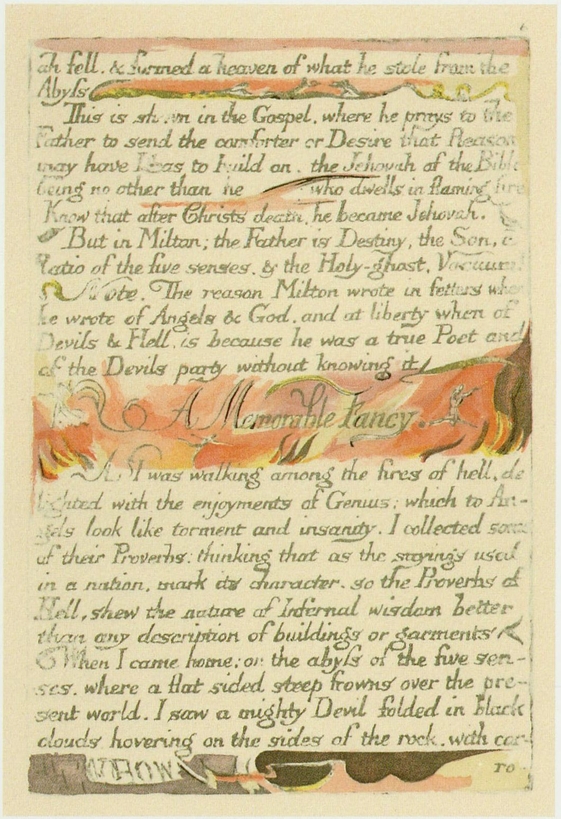 6
ah fell. & formed a heaven of what he stole from the
Abyss
This is shewn in the Gospel, where he prays to the
Father to send the comforter or Desire that Reason
may have Ideas to build on, the Jehovah of the Bible
being no other than he who dwells in flaming fire
Know that after Christs death, he became Jehovah.
But in Milton; the Father is Destiny, the Son, a
Ratio of the five senses. & the Holy-ghost, Vacuum!
Note. The reason Milton wrote in fetters when
he wrote of Angels & God, and at liberty when of
Devils & Hell, is because he was a true Poet and
of the Devils party without knowing it
A Memorable Fancy.
As I was walking among the fires of hell, de-
lighted with the enjoyments of Genius; which to An-
gels look like torment and insanity. I collected some
of their Proverbs: thinking that as the sayings used
in a nation, mark its character, so the Proverbs of
Hell, shew the nature of Infernal wisdom better
than any description of buildings or garments
When I came home; on the abyss of the five sen-
ses. where a flat sided steep frowns over the pre-
sent world. I saw a mighty Devil folded in black
clouds hovering on the sides of the rock. with cor-
ro-